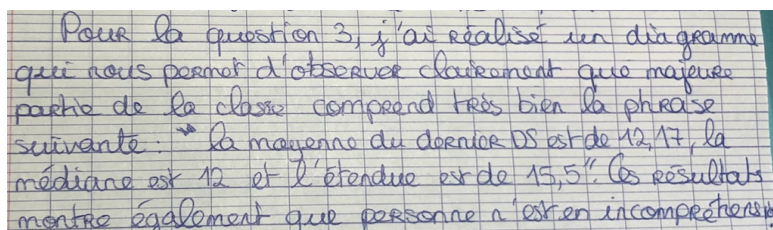 Pour la question 3, j'ai réalisé un diagramme
qui nous permet d'observer clairement que majeure
partie de la classe comprend très bien la phrase
suivante : "La moyenne du dernier DS est de 12,17, la
médiane est 12 et l'étendue est de 15,5". Ces résultats
montre également que personne n'est en incompréhension